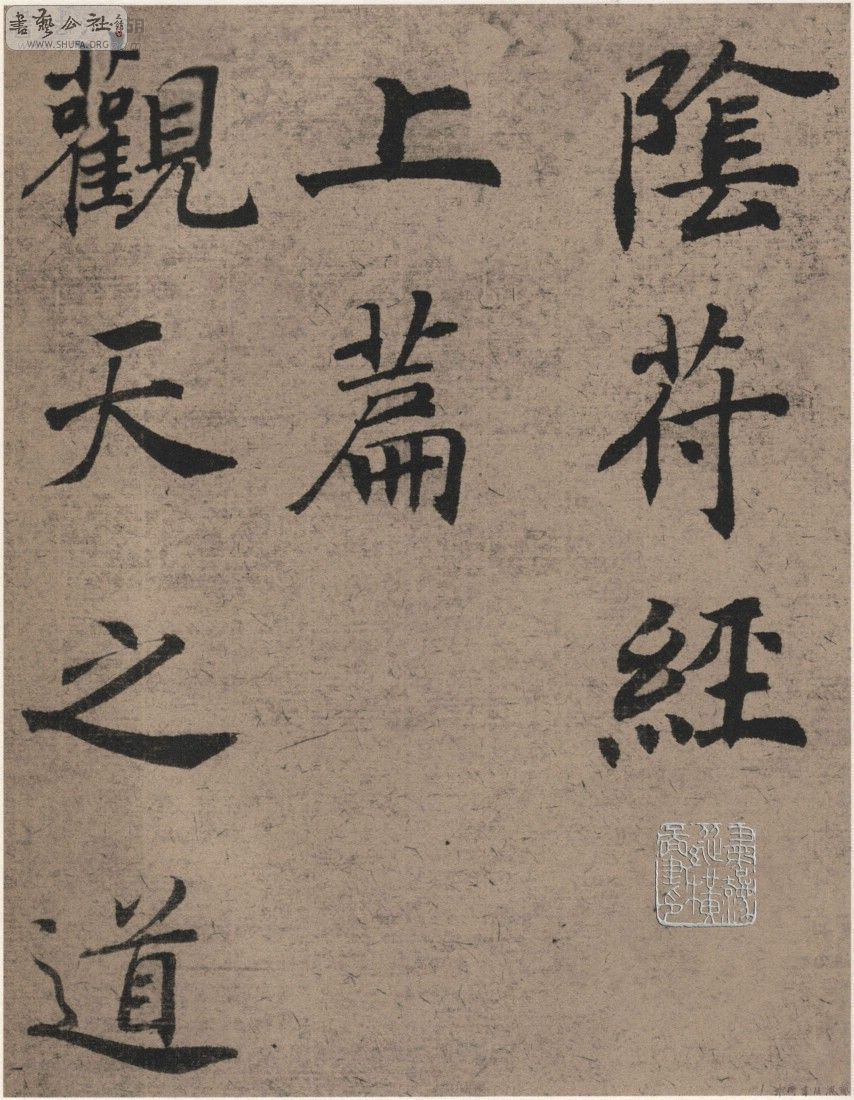 陰苻經
上萹
觀天之道
書藝公社
WWW.SHUFA.ORG